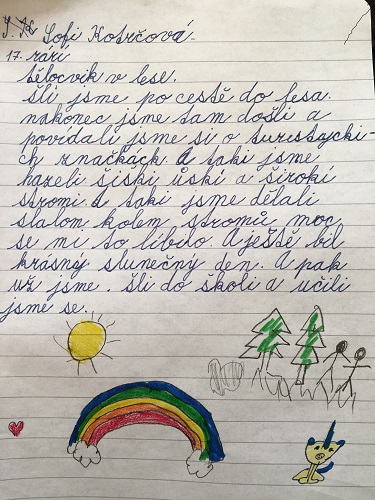 Sofi Kotrčová.
17. září
tělocvik v lese.
Šli jsme. po cestě do lesa.
nakonec jsme tam došli a
povídali jsme si o turistycki-
ch značkách. A taki jsme
hazeli šiški úskí a širokí
stromi a taki jsme dělali
slalom kolem stromů moc
se mi to líbilo. A ještě bil
krásný slunečný den. A pak
už jsme. šli do školi a učili
jsme se.